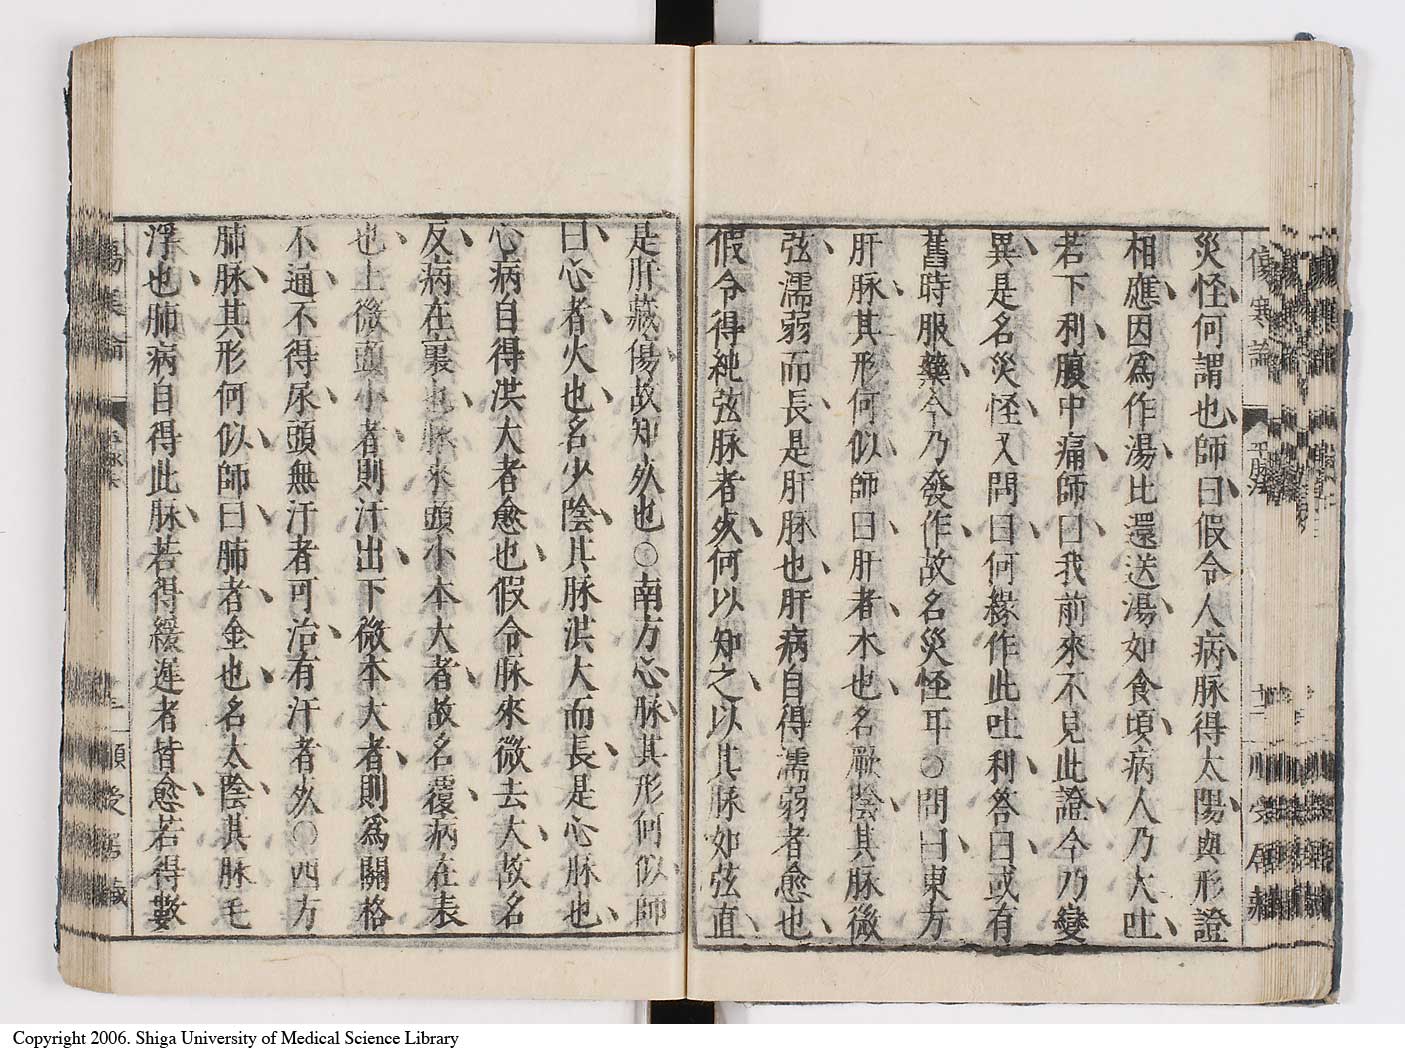 災怪何謂也師曰假令人病脉得太陽與形證
相應因爲作湯比還送湯如食頃病人乃大吐
若下利腹中痛師曰我前來不見此證今乃變
異是名災怪又問曰何緣作此吐利答曰或有
舊時服藥今乃發作故名災怪耳○問曰東方
肝脉其形何似師曰肝者木也名厥陰其脉微
弦濡弱而長是肝脉也肝病自得濡弱者愈也
假令得純弦脉者死何以知之以其脉如弦直
傷寒論
平脉法
十二
順受居藏
是肝藏傷故知死也○南方心脉其形何似師
曰心者火也名少陰其脉洪大而長是心脉也
心病自得洪大者愈也假令脉來微去大故名
反病在裏也脉來頭小本大者故名覆病在表
也上微頭小者則汗出下微本大者則爲關格
不通不得尿頭無汗者可治有汗者死○西方
肺脉其形何似師曰肺者金也名太陰其脉毛
浮也肺病自得此脉若得緩遲者皆愈若得數
順受居藏
Copyright 2006. Shiga University of Medical Science Library